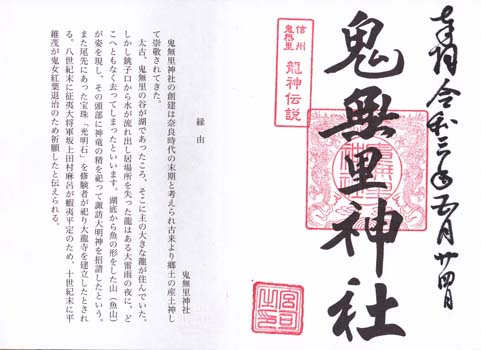 奉拝 令和三年五月廿四日
鬼無里神社
信州
鬼無里
龍神伝説
鬼無里神社
縁由
鬼無里神社の創建は奈良時代の末期と考えられ古来より郷土の産土神し
て崇敬されてきた。
太古、鬼無里の谷が湖であったころ、そこに主の大きな龍が住んでいた。
しかし銚子口から水が流れ出し居場所を失った龍はある大雷雨の夜に、ど
こへともなく去ってしまったといいます。湖底から魚の形をした山(魚山)
が姿を現し、その頭部に神竜の精を祀って諏訪大明神を招請したという。
また尾先にあった宝珠「光明石」を修験者が祀り大龍寺を建立したとされ
る。八世紀末に征夷大将軍坂上田村麻呂が蝦夷平定のため、十世紀末に平
維茂が鬼女紅葉退治のため祈願したと伝えられる。